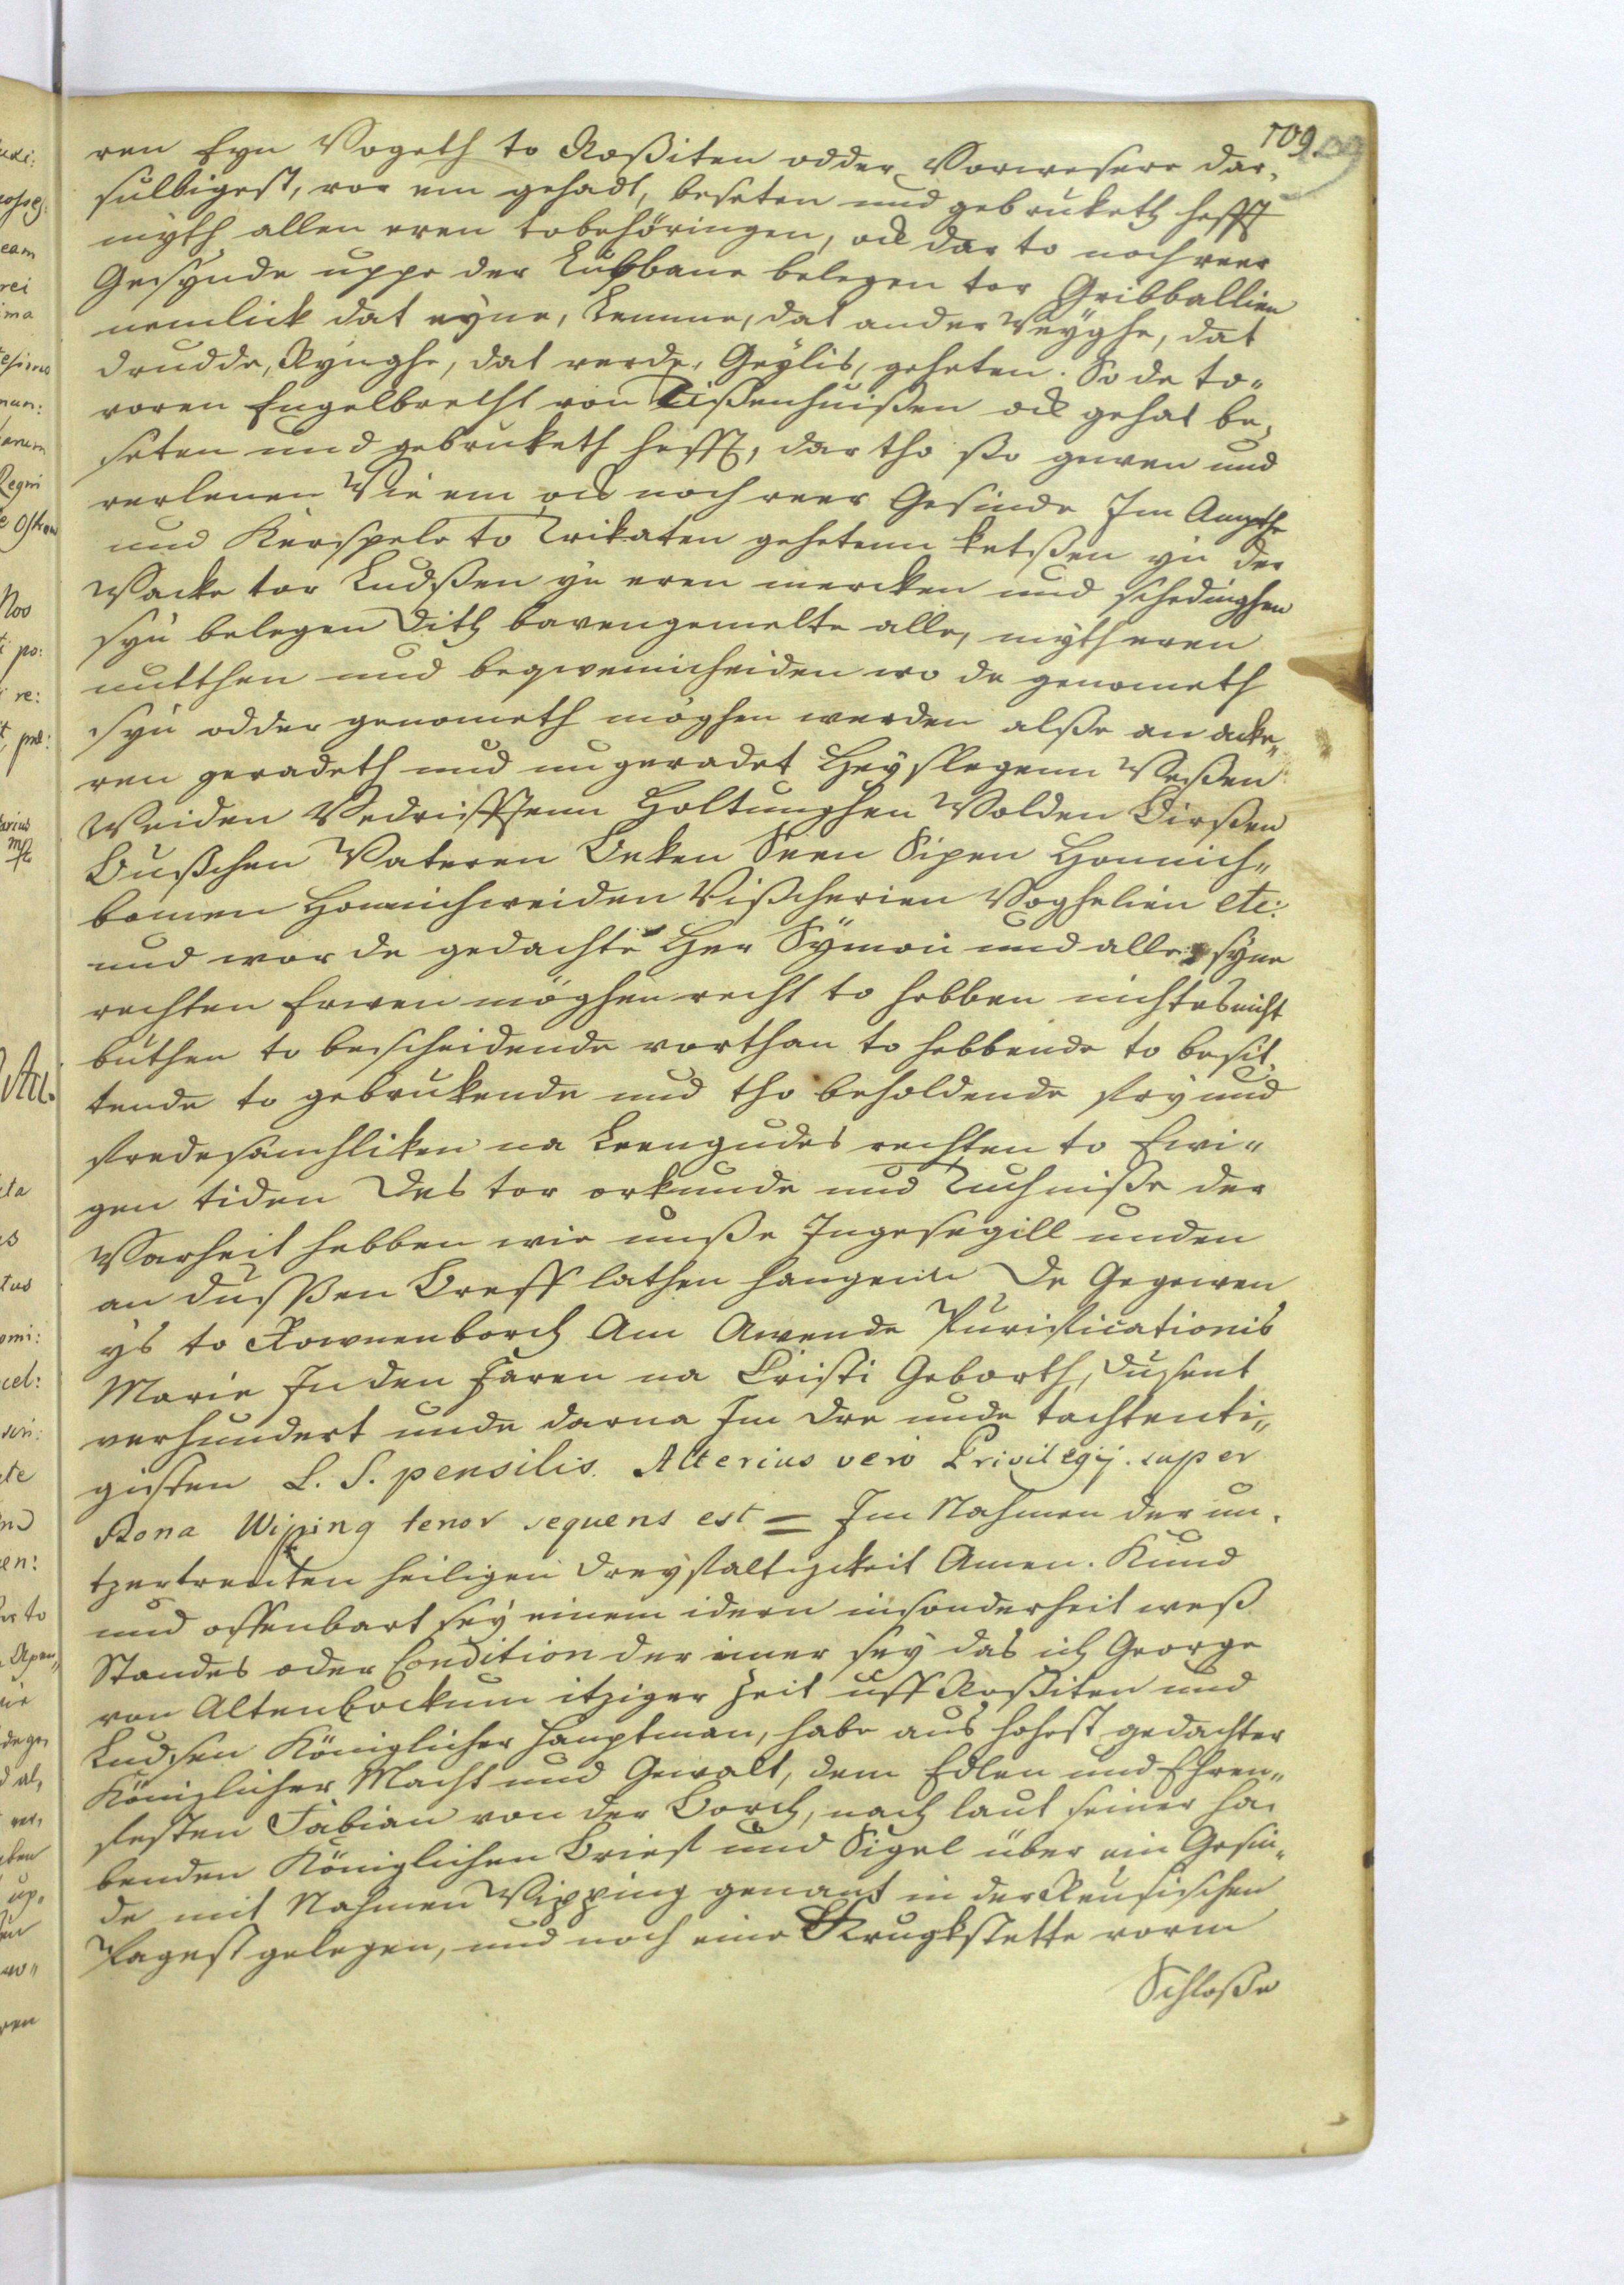 109.
ren Eyn Vogeth to Roßiten odder Vorwesere dar-
sulbigest, vor em gehadt, beseten und gebruketh hefft
myth allen eren tobehöringen, ock dar to noch veer
Gesynde uppe der Lubbane belegen tor Gribballien
nemlick dat eyne, Lemme, dat ander Veyghe, dat
drudde, Rynghe, dat verde, Greylis, geheten. So de to-
voren Engelbrecht von Tißenhuißen ock gehat be-
seten und gebruketh hefft, dar tho ßo geven und
verlenen Wie em ock noch veer Gesinde Im Ampthe
und Kerspele to Trikaten gehetenn ketßen yn der
Wacke tor Ludßen yn eren mercken und schedinghen
syn belegen Dith bavengemelte alle, myth eren
nutthen und beqwemicheiden wo de genometh
syn odder genometh möghen werden alße an acke-
ren geradeth und ungeradet Heyslegenn Weßen
Weiden Vedrifftenn Holtunghen Wolden Birßen
Bußchen Wateren Beken Seen Sipen Honnich-
bomen Honnichweiden Vißcherien Voghelien etc:
und wor de gedachte Her Symon und alle syne
rechten Erwen möghen recht to hebben nichtesnicht
buthen to bescheidende vorthan to hebbende to besit-
tende to gebrukende und tho beholdende fry und
fredesamhliken na Leengudes rechten to Ewi-
gen tiden Des tor orkunde und Tuchniße der
Warheit hebben wie unße Ingesegill unden
an dußßen Breff lathen hangenn De Gegewen
ys to Rownenborch Am Avende Purificationis
Marie In den Jaren na Cristi Geborth, dusent
verhundert unde darna Im dre unde tachtenti-
gisten L. S. pensilis. Alterius vero Privilegij. super
Bona Wipping tenor sequens est = Im Nahmen der un-
tzertrenten heiligen dreyfaltigkeit Amen. Kund
und offenbart sey einem idern insonderheit weß
Standes oder Condition der imer sey das ich George
von Altenbockum itziger Zeit uff Roßiten und
Ludsen Königlicher Hauptman, habe aus hohest gedachter
Königlicher Macht und Gewalt, dem Edlen und Ehren-
festen Fabian von der Borch, nach laut seiner ha-
benden Königlichen Brief und Sigel über ein Gesin-
de mit Nahmen Wipping genant in der Reusischen
Pagast gelegen, und noch eine Krugkstette vorm
Schloße